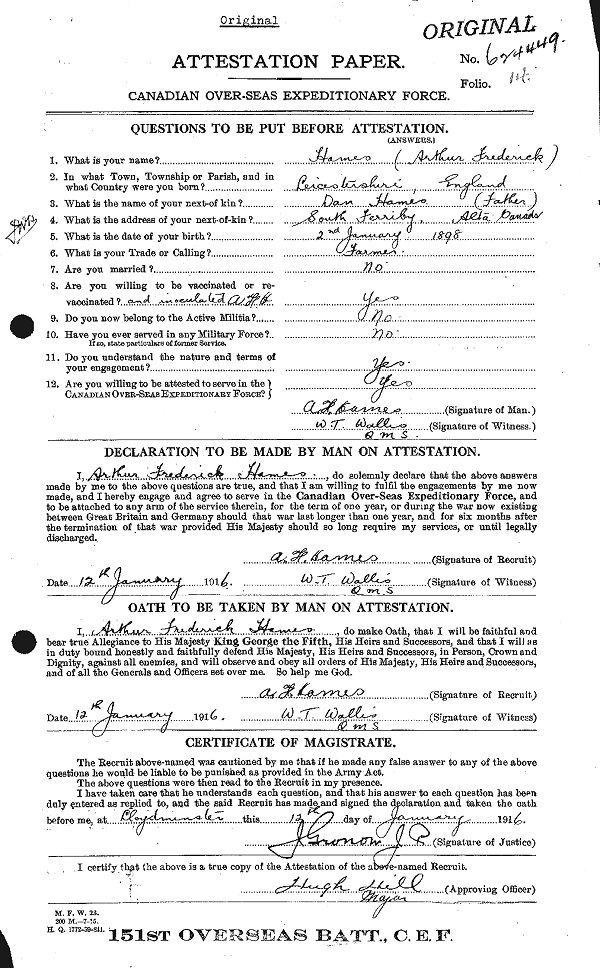 Original
ORIGINAL
No. 624449.
ATTESTATION PAPER.
Folio.
CANADIAN OVER-SEAS EXPEDITIONARY FORCE.
QUESTIONS TO BE PUT BEFORE ATTESTATION.
(ANSWERS.)
1. What is your name? Hames (Arthur Frederick)
2. In what Town, Township or Parish, and in
what Country were you born? Leicestershire, England
3. What is the name of your next-of-kin? Dan Hames (Father)
4. What is the address of your next-of-kin? South Ferriby, Alta Canada
5. What is the date of your birth? 2nd January 1898
6. What is your Trade or Calling? Farmer.
7. Are you married? No
8. Are you willing to be vaccinated or re-
vaccinated? and inoculated A F H Yes
9. Do you now belong to the Active Militia? No
10. Have you ever served in any Military Force? No.
If so, state particulars of former Service.
11. Do you understand the nature and terms of
your engagement? Yes.
12. Are you willing to be attested to serve in the
CANADIAN OVER-SEAS EXPEDITIONARY FORCE? Yes
A F Hames (Signature of Man.)
W. T. Wallis (Signature of Witness.)
Q M S.
DECLARATION TO BE MADE BY MAN ON ATTESTATION.
I, Arthur Frederick Hames, do solemnly declare that the above answers
made by me to the above questions are true, and that I am willing to fulfil the engagements by me now
made, and I hereby engage and agree to serve in the Canadian Over-Seas Expeditionary Force, and
to be attached to any arm of the service therein, for the term of one year, or during the war now existing
between Great Britain and Germany should that war last longer than one year, and for six months after
the termination of that war provided His Majesty should so long require my services, or until legally
discharged.
A. F. Hames (Signature of Recruit)
Date 12th January 1916. W. T. Wallis (Signature of Witness)
Q M S
OATH TO BE TAKEN BY MAN ON ATTESTATION.
I, Arthur Frederick Hames, do make Oath, that I will be faithful and
bear true Allegiance to His Majesty King George the Fifth, His Heirs and Successors, and that I will as
in duty bound honestly and faithfully defend His Majesty, His Heirs and Successors, in Person, Crown and
Dignity, against all enemies, and will observe and obey all orders of His Majesty, His Heirs and Successors,
and of all the Generals and Officers set over me. So help me God.
A. F Hames (Signature of Recruit)
Date 12th January 1916. W. T. Wallis (Signature of Witness)
Q M S
CERTIFICATE OF MAGISTRATE.
The Recruit above-named was cautioned by me that if he made any false answer to any of the above
questions he would be liable to be punished as provided in the Army Act.
The above questions were then read to the Recruit in my presence.
I have taken care that he understands each question, and that his answer to each question has been
duly entered as replied to, and the said Recruit has made and signed the declaration and taken the oath
before me, at Lloydminster this 12th day of January 1916.
J Gronow J. P. (Signature of Justice)
I certify that the above is a true copy of the Attestation of the above-named Recruit.
Hugh Hill (Approving Officer)
Major
M. F. W. 23.
200 M.—7-15.
H. Q. 1772-39-841.
151ST OVERSEAS BATT., C.E.F.